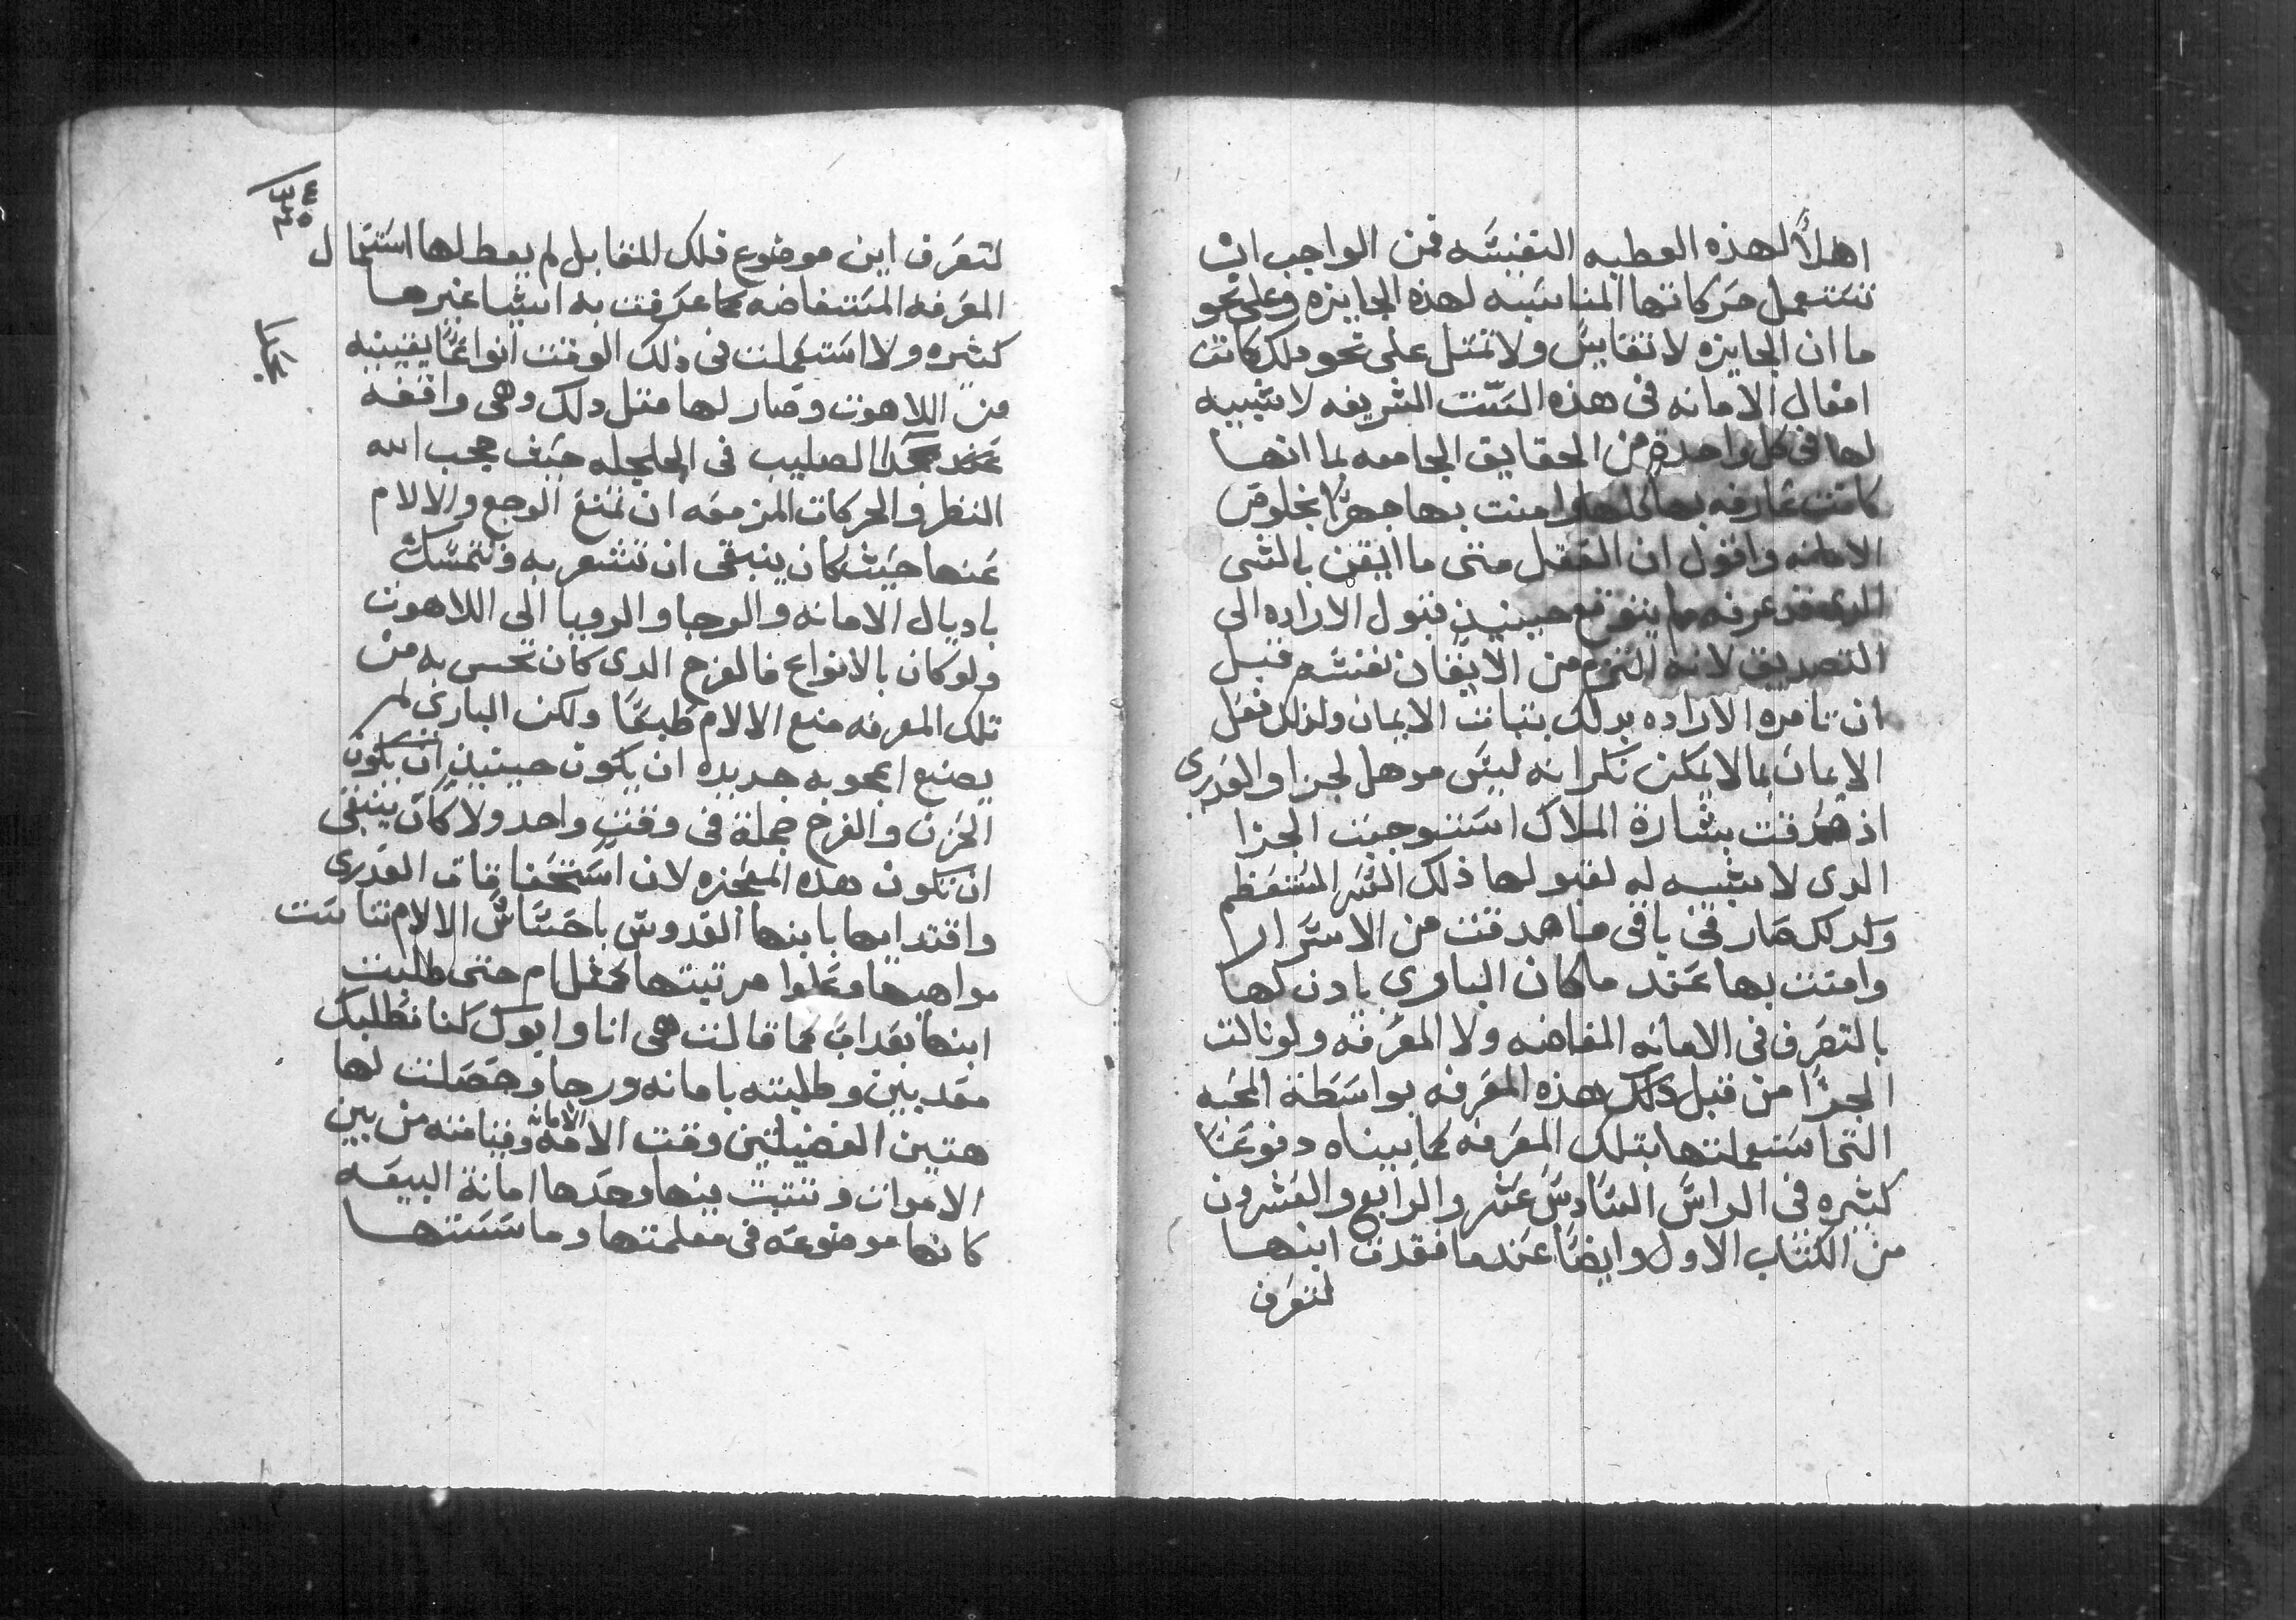 اهلاً لهذه العطيه النفيسه فمن الواجب ان
تستعمل حركاتها المناسبه لهذه الجايزه وعلى نحو
ما ان الجايزه لا تقايس ولا تمتل على نحو دلك كانت
افعال الامانه فى هذه الست الشريفه لا شبيه
لها فى كل واحدة من الحقايق الجامعه لما انها
كانت عارفه بها كلها وامنت بها جهرًا بخلوص
الامانه واقول ان العقل متى ما ايقن بالشى
الدى قد عرفه ما يتوقع حينيذ قبول الاراده الى
التصديق لانه التزم من الايقان نفسه قبل
ان تامره الاراده بدلك بثبات الايمان ولذلك فعل
الايمان بما لا يمكن نكرانه ليس موهل لجزا والقدرى
اذ صدقت بشارة الملاك استوجبت الجزا
الدى لا شبيه له لقبولها ذلك السر المستعظم
ولدلك صار فى باقى ما صدقت من الاسرار
وامنت بها عند ما كان البارى يادن لها
بالتعرف فى الامانه المفاضه ولا المعرفه ولو نالت
الجزا من قبل دلك هذه المعرفه بواسطة المحبه
التى استعملتها بتلك المعرفه كما بيناه دفوعًا
كثيره فى الراس السادس عشر والرابع والعشرون
من الكتاب الاول وايضًا عندما فقدت ابنها
لتعرف
لتعرف اين موضوع فلك المقابل لم يعطلها استعمال
المعرفه المستفاضه كما عرفت به اشيا غيرها
كثيره ولا استعملت فى ذلك الوقت انواعًا يقينيه
من اللاهوت وصار لها متل دلك وهى واقفه
عند الصليب فى الجلجله حيث حجب الله
النظر والحركات المزمعه ان تمنع الوجع والالام
عنها حيث كان ينبغى ان تشعر به وتتمسك
باديال الامانه والرجا والرويا الى اللاهوت
ولو كان بالانواع فالفرح الدى كان تحس به من
تلك المعرفه منع الالام طبعًا ولكن البارى لم
يصنع اعجوبه جديده ان يكون حينيذ ان يكون
الحزن والفرح جملة فى وقت واحد ولا كان ينبغى
ان تكون هده المعجزه لان استحقاقات القدرى
واقتدايها بابنها القدوس باحساس الالام تناسبت
مواهبها وعلوا مرتبتها كمثل ام حتى طلبت
ابنها بعداب كما قالت هى انا وابوك كنا نطلبك
معدبين وطلبته بامانه ورجا وحصلت لها
هتين الفضيلتين وقت الامه وقيامته من بين
الامانه
الاموات وتتبت بينها وحدها امانة البيعه
كانها موضوعه فى معلمتها وماسستها